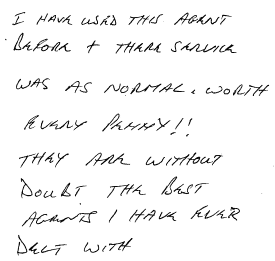 I HAVE USED THIS AGENT
BEFORE + THERE SERVICE
WAS AS NORMAL. WORTH
EVERY PENNY!!
THEY ARE WITHOUT
DOUBT THE BEST
AGENTS I HAVE EVER
DELT WITH